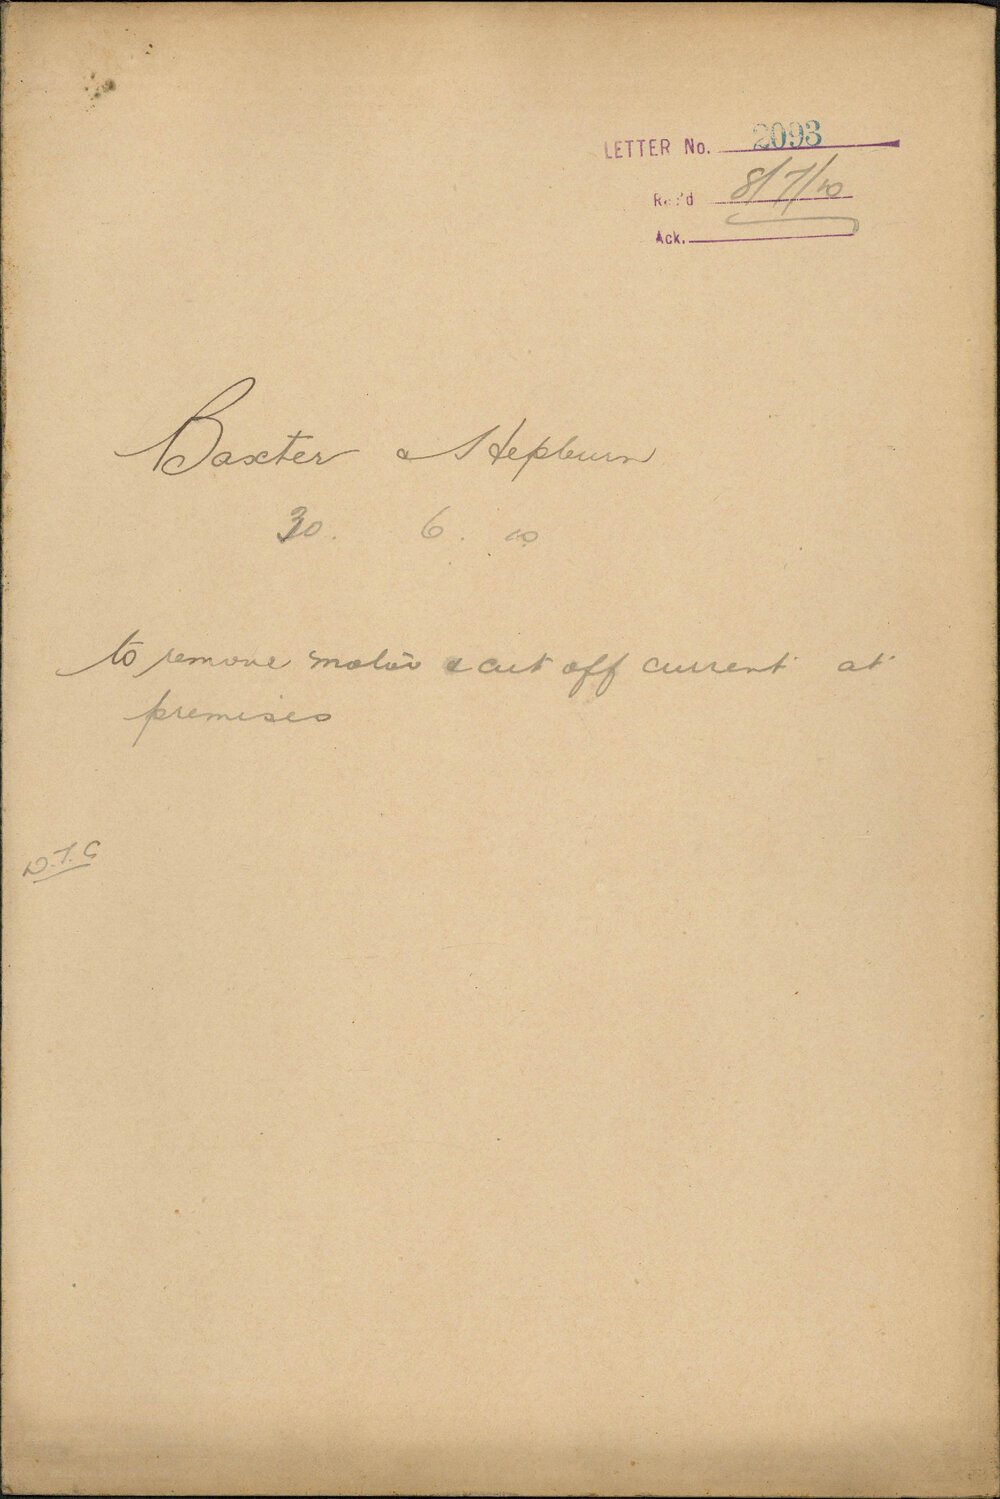 LETTER No. 2093
Rec'd 8/7/10
Ack.
Baxter & Hepburn
30. 6. 10
to remove motor & cut off current at
premises
D.T.C